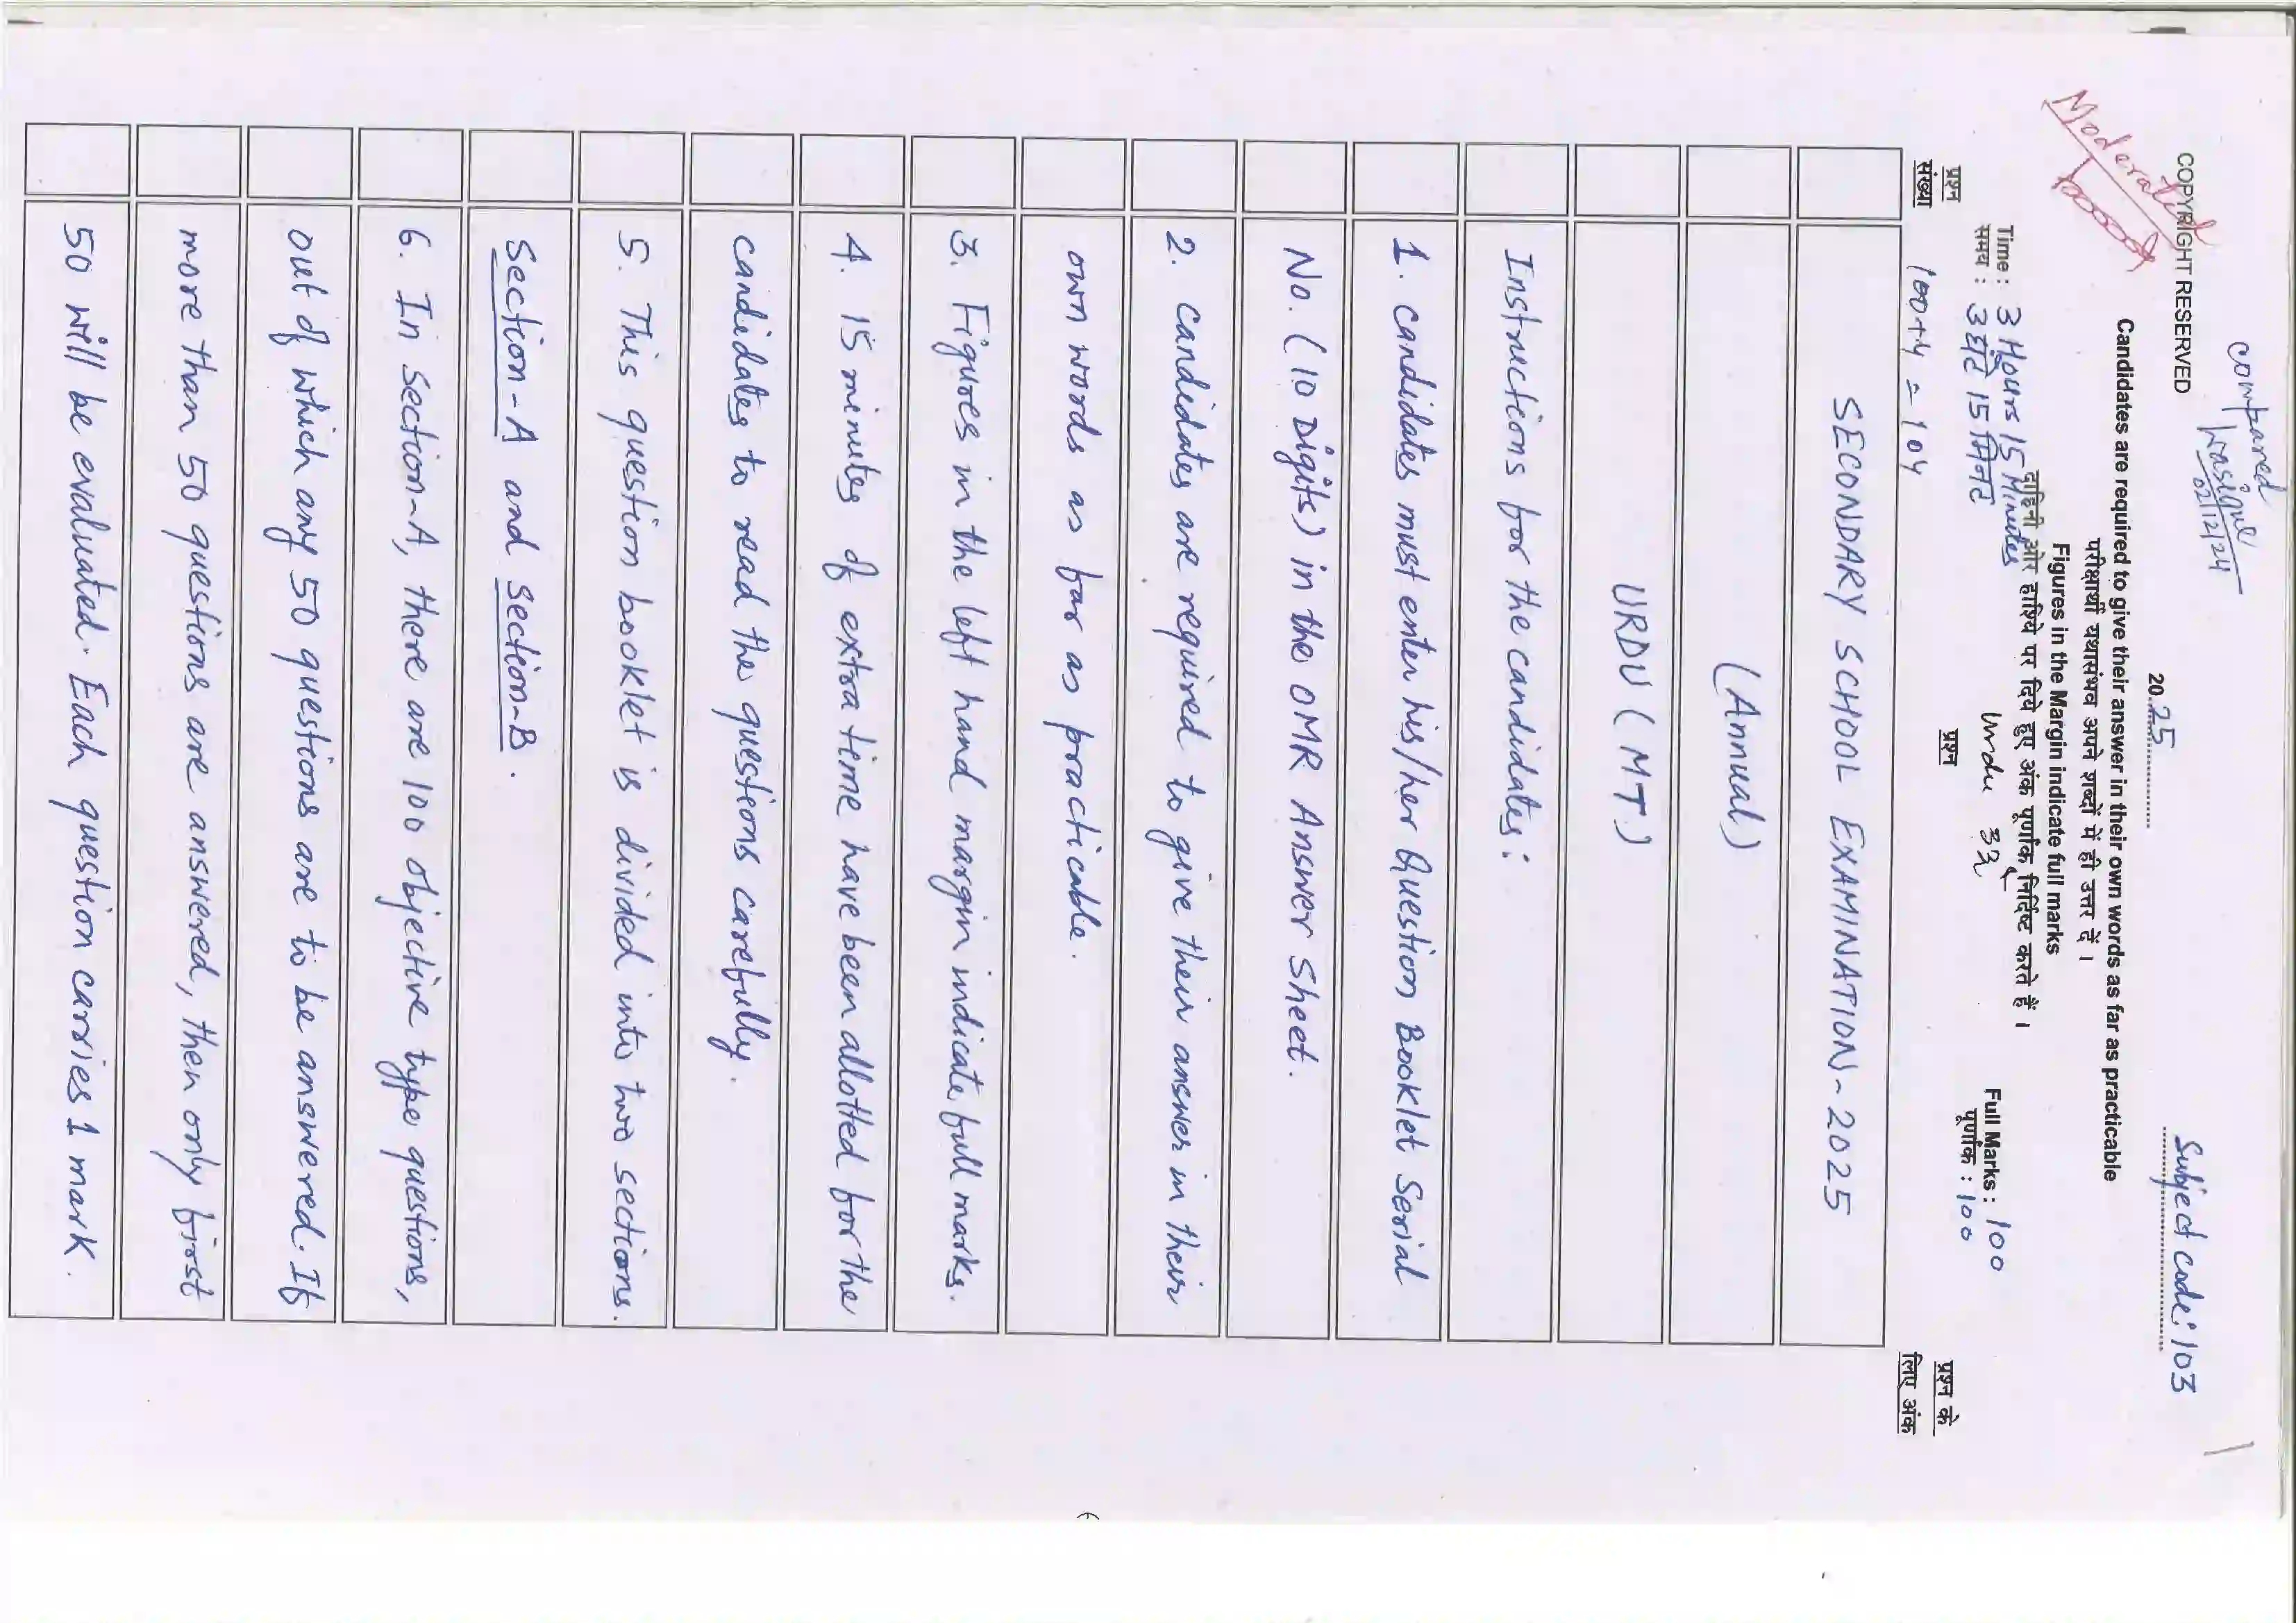 compared
Wasique
02/12/24
COPYRIGHT RESERVED
2025
Subject code: 103
Moderated
Candidates are required to give their answer in their own words as far as practicable
परीक्षार्थी यथासंभव अपने शब्दों में ही उत्तर दें।
Figures in the Margin indicate full marks
दाहिनी ओर हाशिये पर दिये हुए अंक पूर्णांक निर्दिष्ट करते हैं।
Time : 3 Hours 15 Minutes Urdu उर्दू Full Marks : 100
समय : 3 घंटे 15 मिनट पूर्णांक : 100
प्रश्न संख्या प्रश्न प्रश्न के लिए अंक
100+4 = 104
SECONDARY SCHOOL EXAMINATION-2025
(Annual)
URDU (MT)
Instructions for the candidates:
1. Candidates must enter his/her Question Booklet Serial
No. (10 Digits) in the OMR Answer Sheet.
2. Candidates are required to give their answer in their
own words as far as practicable.
3. Figures in the left hand margin indicate full marks.
4. 15 minutes of extra time have been allotted for the
candidates to read the questions carefully.
5. This question booklet is divided into two sections.
Section-A and Section-B.
6. In Section-A, there are 100 objective type questions,
out of which any 50 questions are to be answered. If
more than 50 questions are answered, then only first
50 will be evaluated. Each question carries 1 mark.